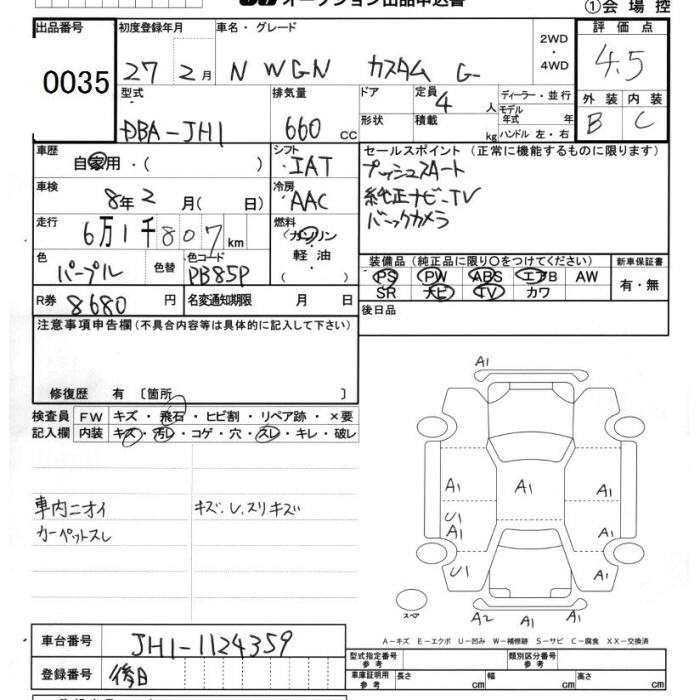 オークション出品申込書
①会場控
出品番号
0035
初度登録年月
27 2月
車名・グレード
N WGN カスタム G
2WD・4WD
評価点
4.5
外装 内装
B C
型式
DBA-JH1
排気量
660 cc
ドア
形状
定員
4 人
積載
kg
ディーラー・並行
モデル年式 年
ハンドル 左・右
車歴
自家用・( )
シフト
IAT
セールスポイント (正常に機能するものに限ります)
プッシュスタート
純正ナビ・TV
バックカメラ
車検
8年2月( 日)
冷房
AAC
走行
6万1千807km
燃料
ガソリン
軽油
( )
色
パープル
色替
色コード
PB85P
装備品 (純正品に限り○をつけてください)
PS PW ABS エアB AW
SR ナビ TV カワ
新車保証書
有・無
R券
8680円
名変通知期限 月 日
後日品
注意事項申告欄(不具合内容等は具体的に記入して下さい)
修復歴 有 〔箇所 〕
検査員記入欄
FW キズ・飛石・ヒビ割・リペア跡・×要
内装 キズ・汚レ・コゲ・穴・スレ・キレ・破レ
車内ニオイ
カーペットスレ
キズ.U.スリキズ
A1
A1 A1 A1
U1
A1 A1
U1 A1
A2 A1 A1
スペア
A-キズ E-エクボ U-凹み W-補修跡 S-サビ C-腐食 XX-交換済
車台番号
JH1-1124359
登録番号
後日
型式指定番号 参考
類別区分番号 参考
車庫証明用 参考
長さ cm
幅 cm
高さ cm